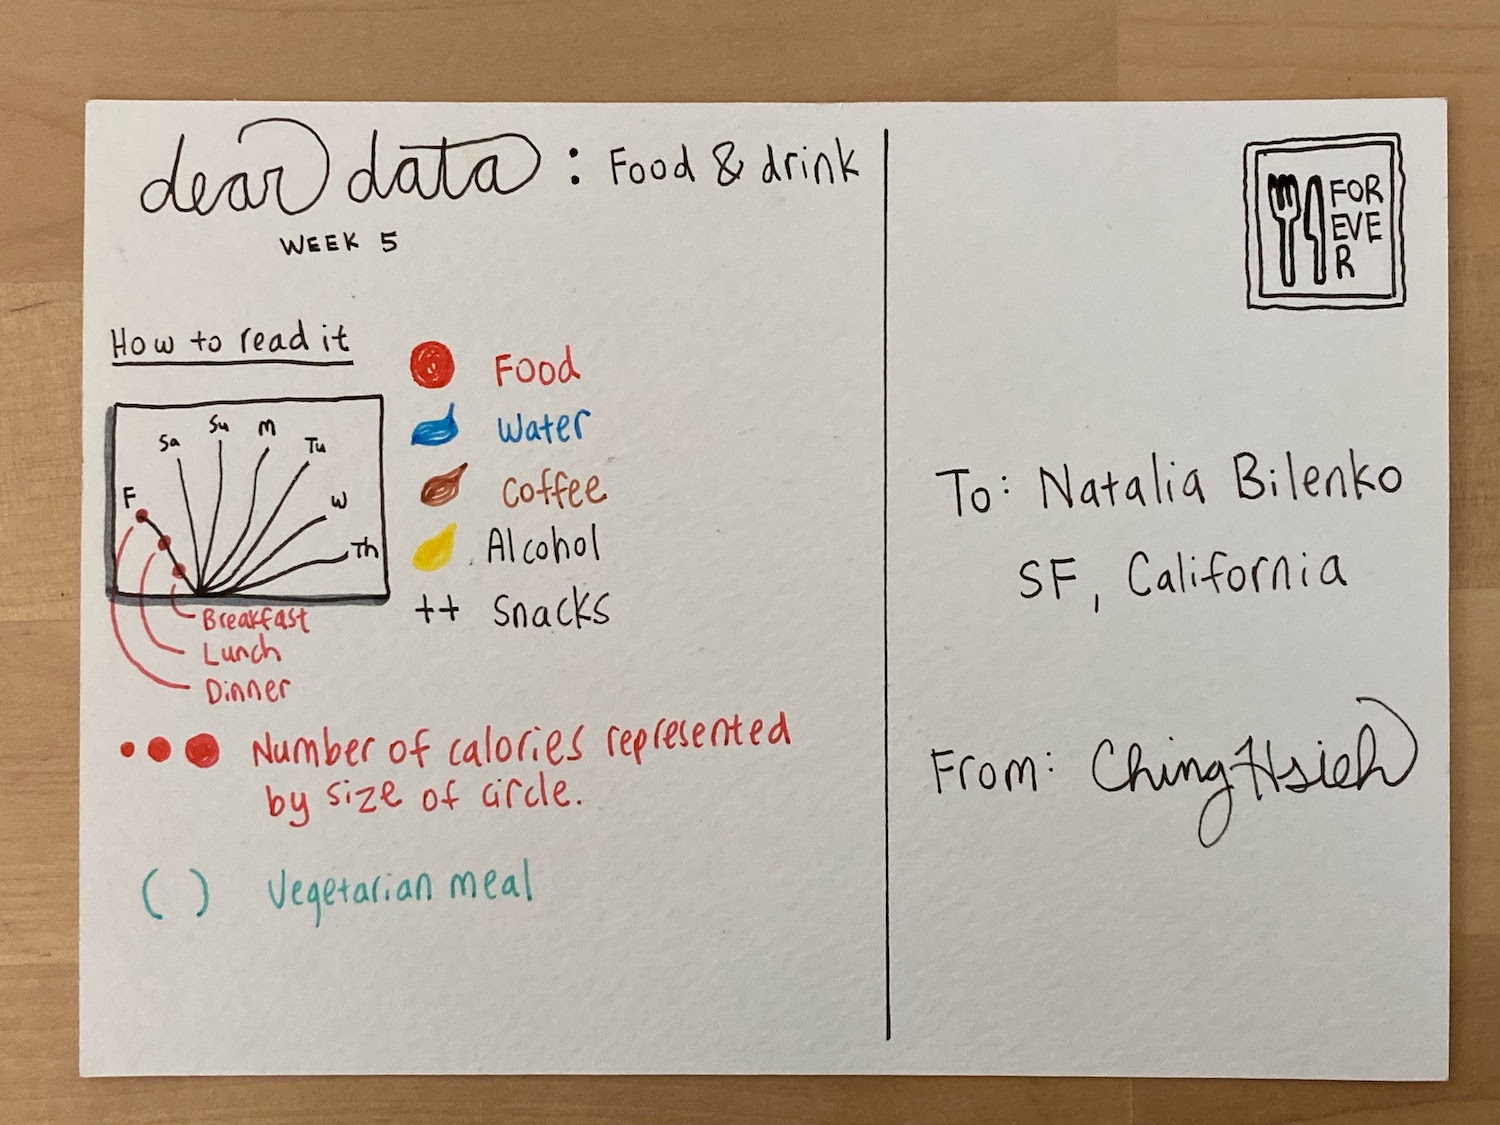 dear data : Food & drink
WEEK 5
How to read it
F
Sa
Su
M
Tu
W
Th
Breakfast
Lunch
Dinner
Food
Water
Coffee
Alcohol
++ Snacks
Number of calories represented
by size of circle.
( ) Vegetarian meal
FOR
EVE
R
To: Natalia Bilenko
SF, California
From: Ching Hsieh